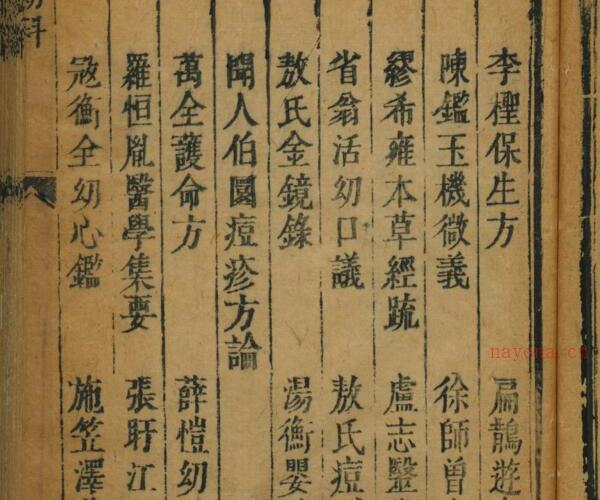 李樫保生方 扁鵲遊
陳鑑玉機微義 徐師曾
繆希雍本草經疏 盧志醫
省翁活幼口議 敖氏痘
敖氏金鏡錄 湯衡嬰
聞人伯圜痘疹方論
萬全護命方 薛愷幼
羅恒胤醫學集要 張盱江
冦衡全幼心鑑 施笠澤
科
nayona.cn